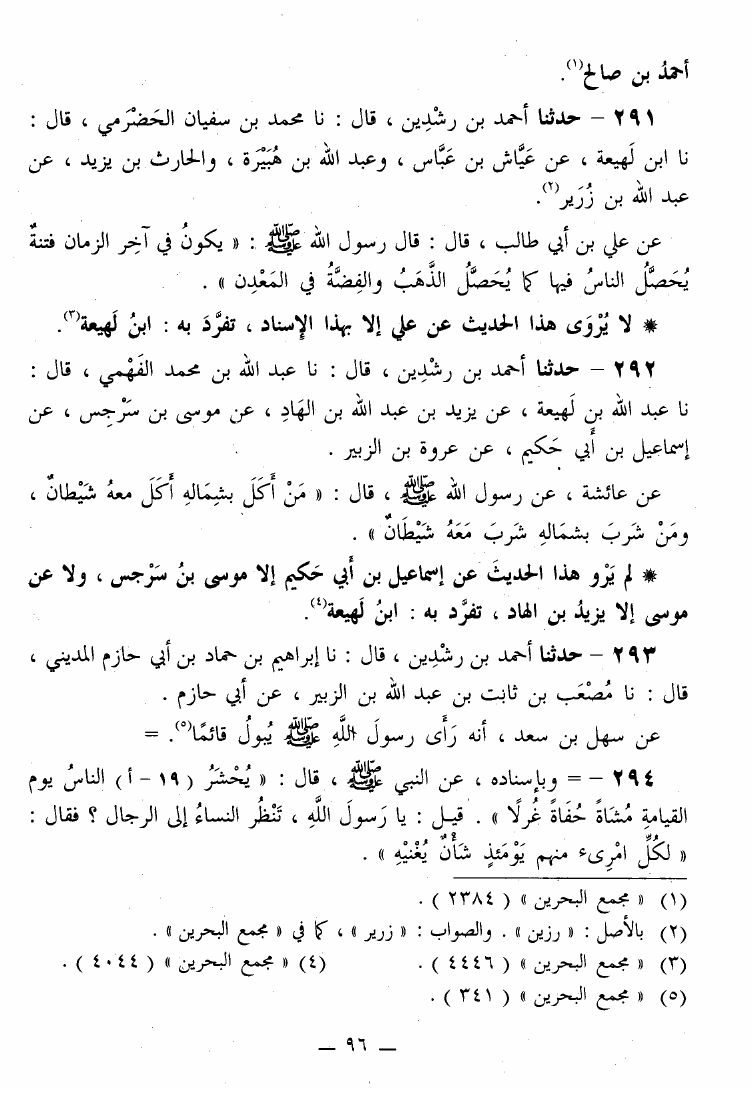 أحمدُ بن صالح(١).
٢٩١ – حدثنا أحمد بن رشْدِين ، قال : نا محمد بن سفيان الحَضْرَمي ، قال :
نا ابن لَهيعة ، عن عَيَّاش بن عَبَّاس ، وعبد الله بن هُبَيْرَة ، والحارث بن يزيد ، عن
عبد الله بن زُرَير(٢).
عن علي بن أبي طالب ، قال : قال رسول الله ﷺ : « يكونُ في آخِر الزمان فتنةٌ
يُحَصَّلُ الناسُ فيها كما يُحَصَّلُ الذَّهَبُ والفِضَّةُ في المَعْدِن » .
* لا يُرْوَى هذا الحديث عن علي إلا بهذا الإسناد ، تفرَّدَ به : ابنُ لَهيعة(٣).
٢٩٢ – حدثنا أحمد بن رشْدِين ، قال : نا عبد الله بن محمد الفَهْمي ، قال :
نا عبد الله بن لَهيعة ، عن يزيد بن عبد الله بن الهَادِ ، عن موسى بن سَرْجِس ، عن
إسماعيل بن أَبي حَكيم ، عن عروة بن الزبير .
عن عائشة ، عن رسول الله ﷺ ، قال : « مَنْ أَكَلَ بشِمَالهِ أَكَلَ معهُ شَيْطانٌ ،
ومَنْ شَربَ بشمالهِ شَربَ مَعَهُ شَيْطَانٌ » .
* لم يَرْو هذا الحديثَ عن إسماعيل بن أَبي حَكيم إلا موسى بنُ سَرْجس ، ولا عن
موسى إلا يزيدُ بن الهاد ، تفرَّد به : ابنُ لَهيعة(٤).
٢٩٣ – حدثنا أحمد بن رشْدين ، قال : نا إبراهيم بن حماد بن أبي حازم المديني ،
قال : نا مُصْعَب بن ثابت بن عبد الله بن الزبير ، عن أبي حازم .
عن سهل بن سعد ، أنه رَأَى رسولَ اللَّهِ ﷺ يُبولُ قائمًا(٥). =
٢٩٤ – = وبإسناده ، عن النبي ﷺ ، قال : « يُحْشَرُ ( ١٩ – أ ) الناسُ يوم
القيامةِ مُشَاةً حُفَاةً غُرلًا » . قيـل : يا رَسولَ اللَّهِ ، تَنْظُر النساءُ إلى الرجال ؟ فقال :
« لكُلِّ امْرِىءٍ منهم يَوْمَئذٍ شَأْنٌ يُغْنيْهِ » .
(١) « مجمع البحرين » ( ٢٣٨٤ ) .
(٢) بالأصل : « رزين » . والصواب : « زرير » ، كما في « مجمع البحرين » .
(٣) « مجمع البحرين » ( ٤٤٤٦ ) . (٤) « مجمع البحرين » ( ٤٠٤٤ ) .
(٥) « مجمع البحرين » ( ٣٤١ ) .
— ٩٦ —